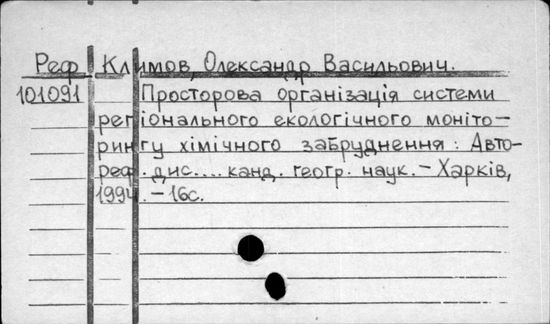 Реф Климов, Олександр Васильович.
101091 Просторова організація системи
регіонального екологічного моніто-
рингу хімічного забруднення: Авто-
реф. дис.... канд. геогр. наук. - Харків,
1994. - 16с.